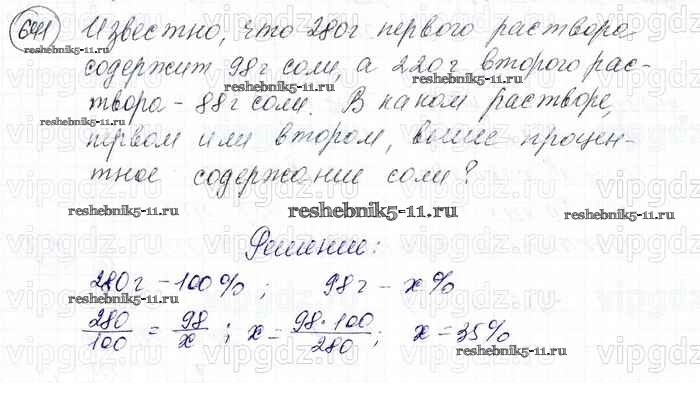 641 Известно, что 280г первого раствора
содержит 98г соли, а 220г второго рас-
твора - 88г соли. В каком растворе,
первом или втором, выше процен-
тное содержание соли?
Решение:
280г - 100% ; 98г - x%
280/100 = 98/x ; x = 98·100/280 ; x = 35%
reshebnik5-11.ru
reshebnik5-11.ru
reshebnik5-11.ru
reshebnik5-11.ru
reshebnik5-11.ru
reshebnik5-11.ru
reshebnik5-11.ru
reshebnik5-11.ru
reshebnik5-11.ru
vipgdz.ru